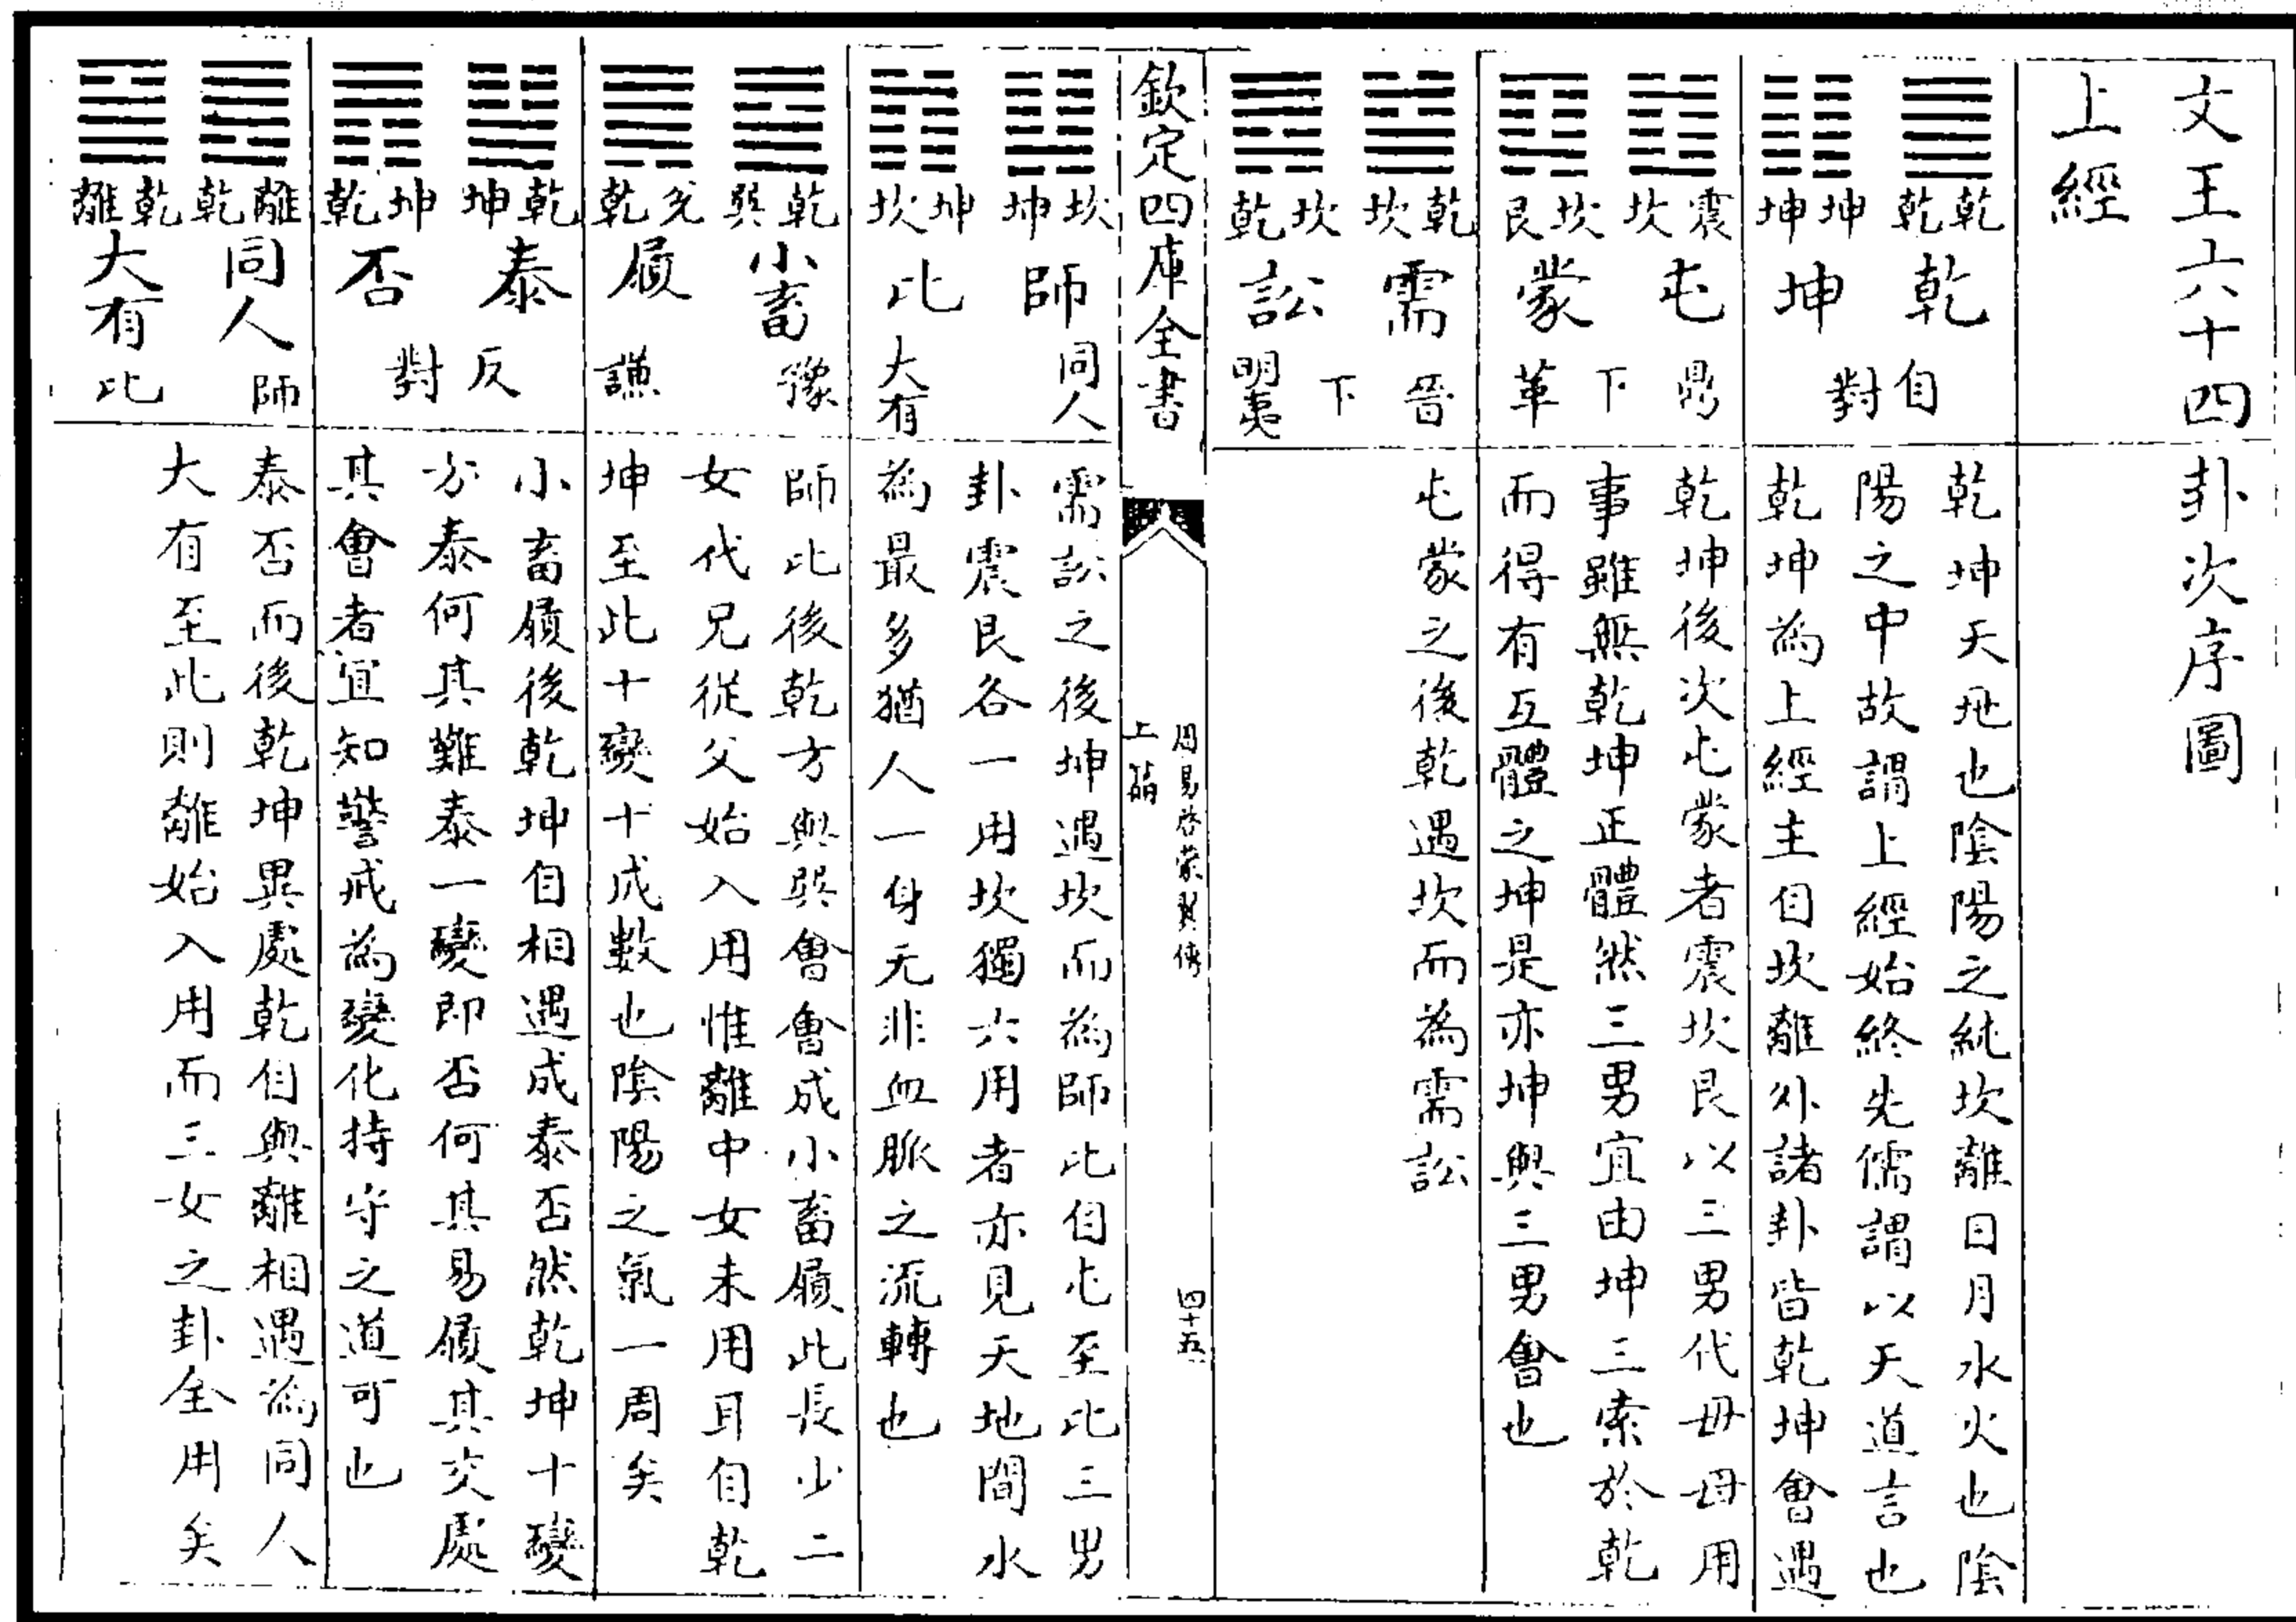 文王六十四卦次序圖
上經
乾乾 乾 自
坤坤 坤 對
乾坤天地也陰陽之純坎離日月水火也陰
陽之中故謂上經始終先儒謂以天道言也
乾坤為上經主自坎離外諸卦皆乾坤會遇
震坎 屯 鼎
下
坎艮 蒙 革
乾坤後次屯蒙者震坎艮以三男代母母用
事雖無乾坤正體然三男宜由坤三索於乾
而得有互體之坤是亦坤與三男會也
乾坎 需 晉
下
坎乾 訟 明夷
屯蒙之後乾遇坎而為需訟
欽定四庫全書
周易啓蒙翼傳
上篇
四十五
坎坤 師 同人
坤坎 比 大有
需訟之後坤遇坎而為師比自屯至比三男
卦震艮各一用坎獨六用者亦見天地間水
為最多猶人一身无非血脈之流轉也
乾巽 小畜 豫
兌乾 履 謙
師比後乾方與巽會會成小畜履此長少二
女代兄從父始入用惟離中女未用耳自乾
坤至此十變十成數也陰陽之氣一周矣
乾坤 泰 反
坤乾 否 對
小畜履後乾坤自相遇成泰否然乾坤十變
方泰何其難泰一變即否何其易履其交處
其會者宜知警戒為變化持守之道可也
離乾 同人 師
乾離 大有 比
泰否而後乾坤異處乾自與離相遇為同人
大有至此則離始入用而三女之卦全用矣